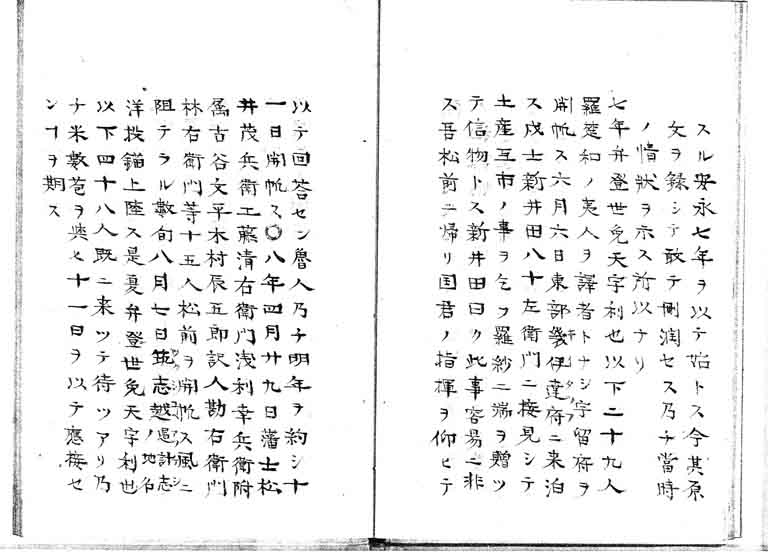 スル安永七年ヲ以テ始トス今其原
文ヲ録シテ敢テ刪潤セス乃チ當時
ノ情狀ヲ示ス所以ナリ
七年弁登世免天字利也以下二十九人
羅楚和ノ夷人ヲ譯者トナシ字留府ヲ
開帆ス六月六日東部幾伊達府ニ来泊
ス戍士新井田八十左衛門ニ接見シテ
土産互市ノ事ヲ乞フ羅紗二端ヲ贈ツ
テ信物トス新井田曰ク此事容易ニ非
ス吾松前ニ帰リ国君ノ指揮ヲ仰ヒテ
以テ回荅セン魯人乃チ明年ヲ約シ十
一日開帆ス〇八年四月廿九日藩士松
井茂兵衛工藤清右衛門浅利幸兵衛附
属古谷文平木村辰五郎訳人勘右衛門
林右衛門等十五人松前ヲ開帆ス風ニ
阻テラル數旬八月七日筑志越ノ地名
洋投錨上陸ス是夏弁登世免天字利也
以下四十八人既ニ来ツテ待ツアリ乃
チ米數苞ヲ與ヒ十一日ヲ以テ應接セ
ンヿヲ期ス